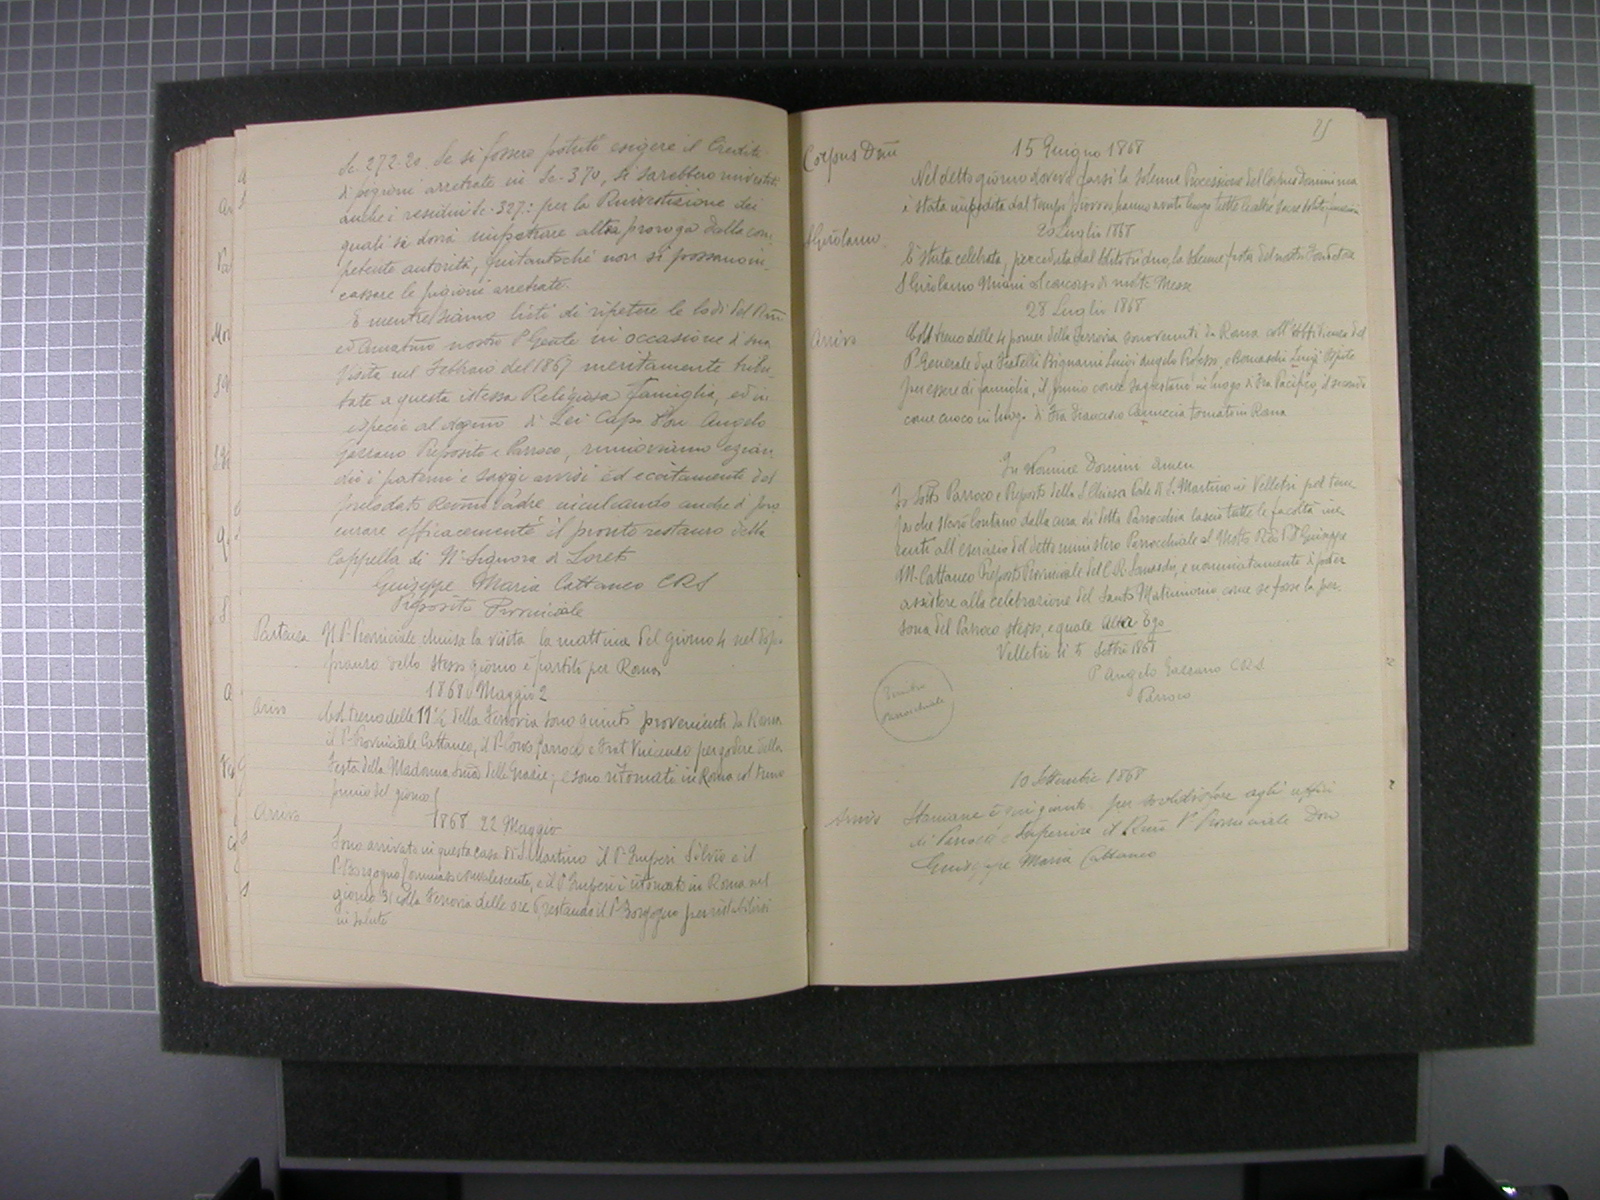 Sc. 272:20. Se si fossero potuti esigere il Credito
di pigioni arretrate in Sc. 370, si sarebbero investiti
anche i residui Sc. 327: per la Rinvestizione dei
quali si dovrà impetrare altra proroga dalla com-
petente autorità, quitantschè non si possano in-
cassare le pigioni arretrate.
E mentre siamo lieti di ripetere le lodi del Rmo
ed Amatmo nostro P. Gente in occasione di sua
Visita nel Febbraio del 1867 meritamente tribu-
tate a questa istessa Religiosa Famiglia, ed in
especie al di Lei Capo Don Angelo
Gessano Preposito e Parroco, rinnoviamo ezian-
dio i paterni e saggi avvisi ed eccitamente del
prelodato Revmo Padre inculcando anche di pro-
curare efficacemente il pronto restauro della
Cappella di N. Signora di Loreto
Giuseppe Maria Cattaneo CRS
Preposito Provinciale
Partenza Il P. Provinciale chiusa la visita la mattina del giorno 4 nel dopo
pranzo dello stesso giorno è partito per Roma
1868 Maggio 2
Arrivo Col treno delle 11 1/2 della Ferrovia sono quinti provenienti da Roma
il P. Provinciale Cattaneo, il P. Parroco e Frat Vincenzo per godere della
Festa della Madonna SSma delle Grazie; e sono ritornati in Roma col treno
primo del giorno
Arrivo 1868 22 Maggio
Sono arrivato in questa casa di S. Martino il P. Imperi Silvio e il
P. Borgogno Tommaso convalescente, e il P. Imperi è ritornato in Roma nel
giorno 31 colla Ferrovia delle ore restando il P. Borgogno per ristabilirsi
in salute
25
Corpus Dni 15 Giugno 1868
Nel detto giorno doveva farsi la solenne Processione del Corpus Domini ma
è stata impedita dal tempo piovoso hanno avuto luogo tutte le altre sacre solite funzioni
S. Girolamo 20 Luglio 1868
È stata celebrata, preceduta dal solito triduo, la solenne festa del nostro Fondatore
S. Girolamo Miani al concorso di molte Messe
28 Luglio 1868
Arrivo Col treno delle 4 pomer della Ferrovia sono venuti da Roma coll'obbedienza del
P. Generale due Fratelli Bignami Luigi Angelo Professo, e Bernaschi Luigi Ospite
per essere di famiglia, il primo come sagrestano in luogo di Fra Pacifico, il secondo
come cuoco in luogo di Fra Francesco Canuccia tornato in Roma
In Nomine Domini Amen
Io Sotto Parroco e Preposto della S. Chiesa Parle di S. Martino in Velletri pel tem-
po che starò lontano dalla cura di detta Parrocchia lascio tutte le facoltà ine-
renti all'esercizio del detto ministero Parrocchiale al Molto Rdo P. D. Giuseppe
M. Cattaneo Preposto Provinciale dei C. R. Somaschi, e nominatamente di poter
assistere alla celebrazione del Santo Matrimonio come se fosse la per-
sona del Parroco stesso, e quale Alter Ego
Velletri li 5 Settre 1868
P. Angelo Gessano CRS
Parroco
Timbro
Parrocchiale
10 Settembre 1868
Arrivo Stamane è qui giunto per soddisfare agli uffici
di Parroco e Superiore il Rmo P. Provinciale Don
Giuseppe Maria Cattaneo